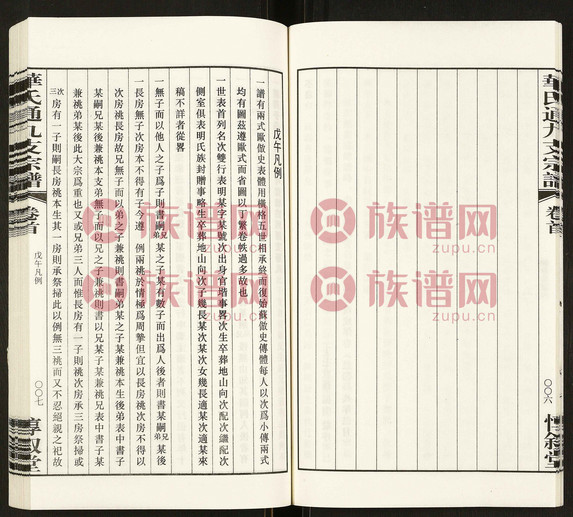 華氏通九支宗譜
卷首
〇〇六
惇敘堂
戊午凡例
一譜有兩式歐倣史表體用橫格五世相承終而復始蘇倣史傳體每人以次爲小傳兩式
均有圖茲遵歐式而省圖以丁繁卷帙過多故也
一世表首列名次雙行表明某字某號次出身官堦事畧次生卒葬地山向次配次繼配次
側室俱表明氏族封贈事略生卒葬地山向次子幾長某次某次女幾長適某次適某來
稿不詳者從畧
一無子而以他人之子爲子則書嗣某之子某有數子而出爲人後者則書某兄弟某後
一長房無子次房本不得有子今遵 例兩祧於情極爲周摯但宜以長房祧次房不得以
次房祧長房故兄無子而以弟之子兼祧則書嗣弟某之子某兼祧本生後弟表中書子
某嗣兄某後兼祧本支弟無子而以兄之子兼祧則書以兄某子某兼祧兄表中書子某
兼祧弟某後此大宗爲重也又或兄弟三人而惟長房有一子則次房承三房祭掃或
次三房有一子則嗣長房祧本生其一房則承祭掃此以例無三祧而又不忍絕親之祀故
華氏通九支宗譜
卷首
戊午凡例
〇〇七
惇敘堂
族谱网
zupu.cn
族谱网
zupu.cn
族谱网
zupu.cn
族谱网
zupu.cn